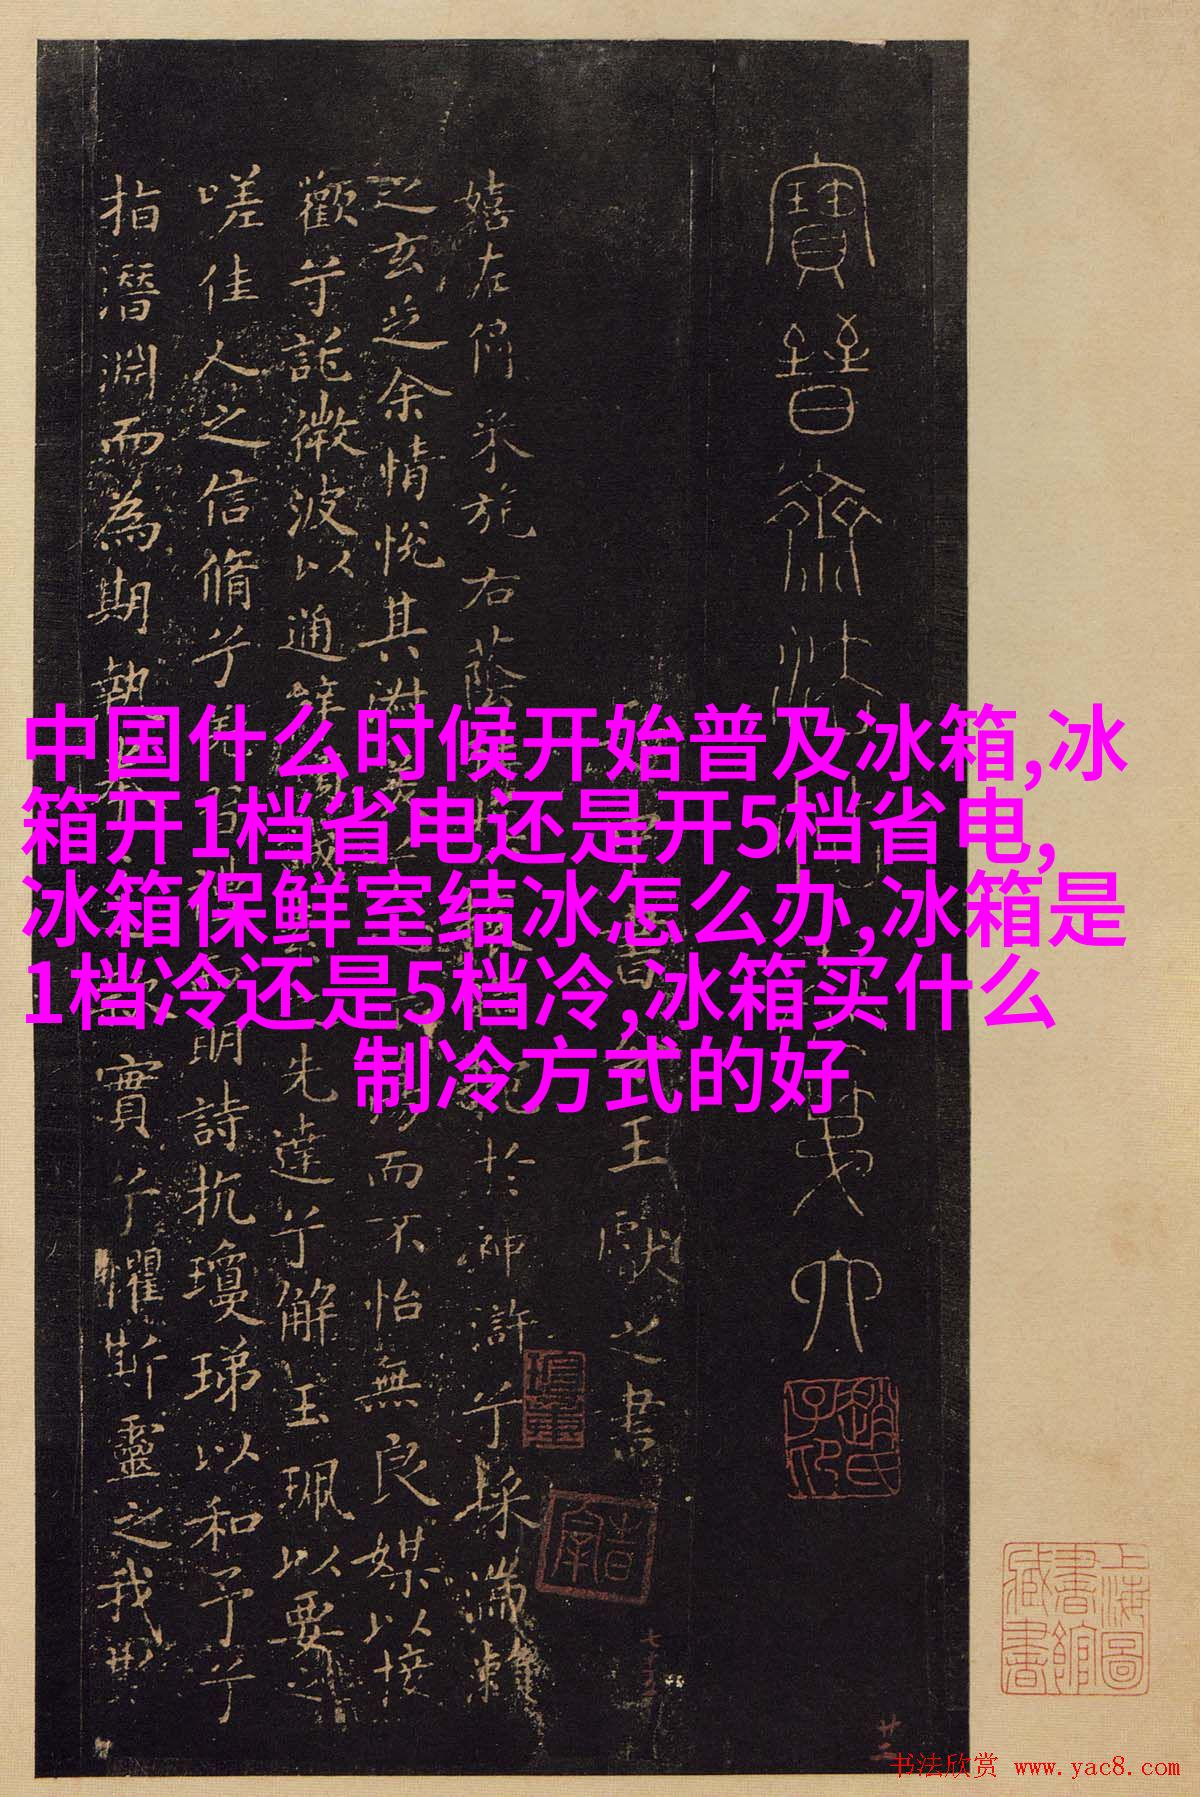 中国什么时候开始普及冰箱,冰
箱开1档省电还是开5档省电,
冰箱保鲜室结冰怎么办,冰箱是
1档冷还是5档冷,冰箱买什么
制冷方式的好
寶晉齋法六
書令王獻之書
嬉左倚采旄右蔭於神滸兮採湍瀨
之玄芝余情悅其淑而不怡無良媒以接
歡兮託微波以通先達兮解玉珮以要之
嗟佳人之信脩兮明詩抗瓊珶以和予兮
指潛淵而為期執實兮懼斯靈之我
上海圖書館藏書
廿二
书法欣赏 www.yac8.com